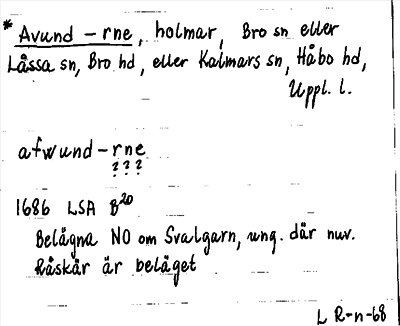 * Avund-rne, holmar, Bro sn eller
Låssa sn, Bro hd, eller Kalmars sn, Håbo hd,
Uppl. l.
afwund-rne
? ? ?
1686 LSA B20
Belägna NO om Svalgarn, ung. där nuv.
Råskär är beläget
L R-n-68